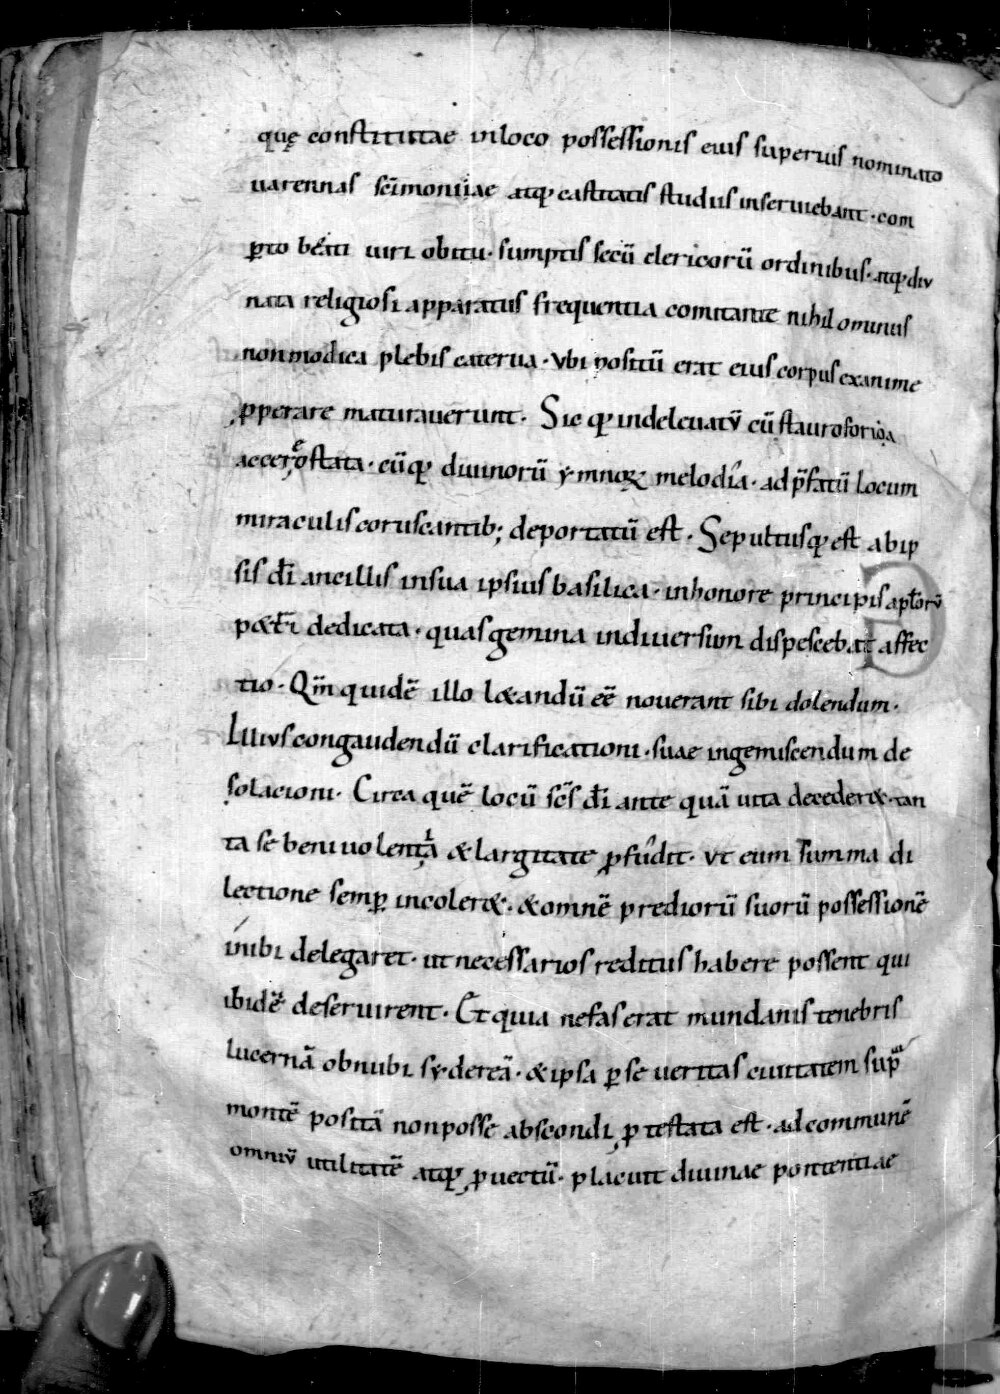 quę constitutae inloco possessionis eius superius nominato
uarennas sc̄imoniae atq; castitatis studiis inseruiebant · com
ꝑto beati uiri obitu · sumptis secū clericorū ordinibus · atq; diu
nata religiosi apparatus frequentia comitante nihilominus
nonmodica plebis caterua · vbi positū erat eius corpus exanime
ꝓperare maturauerunt · Sicq; indeleuatū cū stauroforia
acceroſtata · cūq; diuinorū ymnoꝝ melodia · ad p̄fatū locum
miraculis coruscantib; deportatū est · Sepultusq; est abip
sis dī ancillis insua ipsius basilica · inhonore principis apl̄orū
p&ri dedicata · quas gemina indiuersum dispescebat affec
tio · Qm̄ quidē illo l&andū eē nouerant sibi dolendum ·
Illius congaudendū clarificationi · suae ingemiscendum de
solacioni · Circa quē locū sc̄s dī ante quā uita deceder& · tan
ta se beniuolentia & largitate ꝓfudit · vt eum summa di
lectione semꝑ incoler& · & omnē prediorū suorū possessionē
inibi delegaret · ut necessarios reditus habere possent qui
ibidē deseruirent · Et quia nefas erat mundanis tenebris
lucernā obnubi sydereā · & ipsa ꝑ se ueritas ciuitatem supra
montē positā non posse abscondi ꝓtestata est · ad communē
omniū utilitatē atq; ꝓuectū · placuit diuinae potentiae